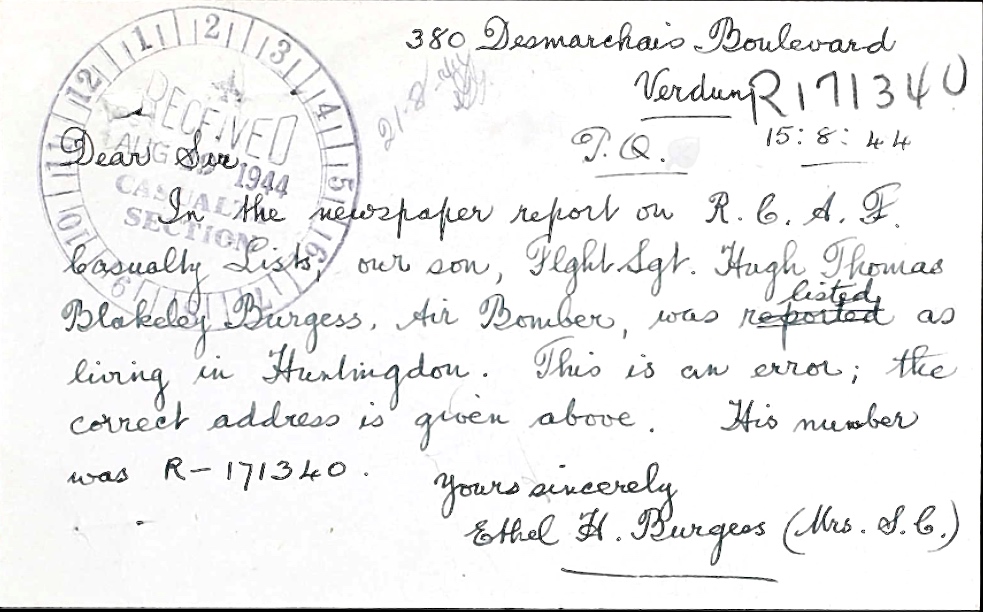 380 Desmarchais Boulevard
Verdun R171340
P.Q. 15:8:44
21-8-44
1 2 3 4 5 6 7 8 9 10 11 12
RECEIVED
AUG 1944
CASUALTY
SECTION
Dear Sir,
In the newspaper report on R.C.A.F.
Casualty Lists, our son, Flght.Sgt. Hugh Thomas
listed
Blakeley Burgess, Air Bomber, was reported as
living in Huntingdon. This is an error; the
correct address is given above. His number
was R-171340.
Yours sincerely
Ethel H. Burgess (Mrs. S.C.)